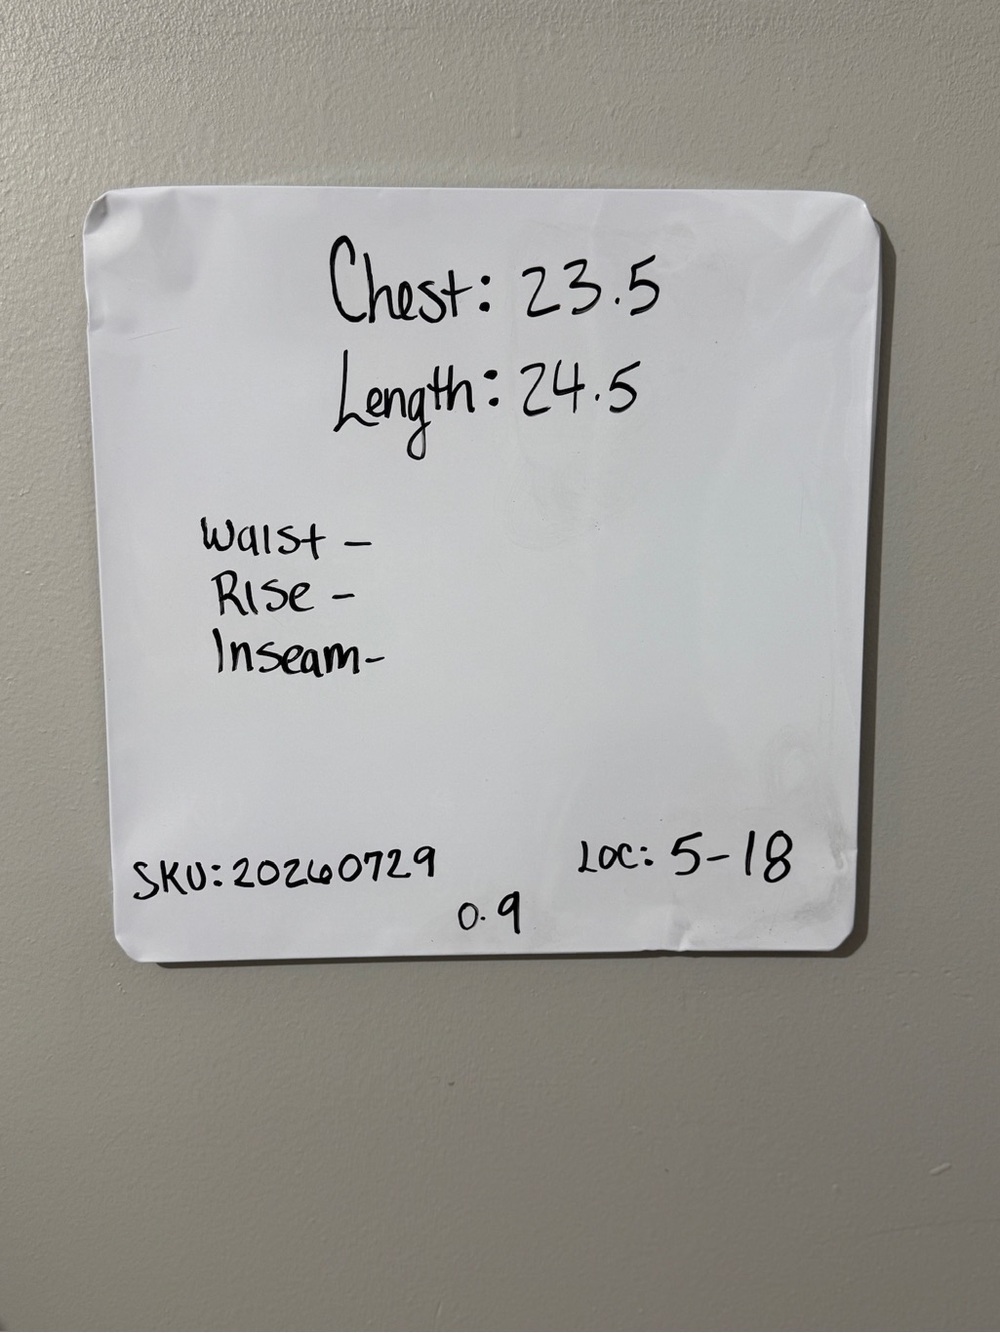 Chest: 23.5
Length: 24.5
Waist -
Rise -
Inseam-
SKU: 20260729
LOC: 5-18
0.9